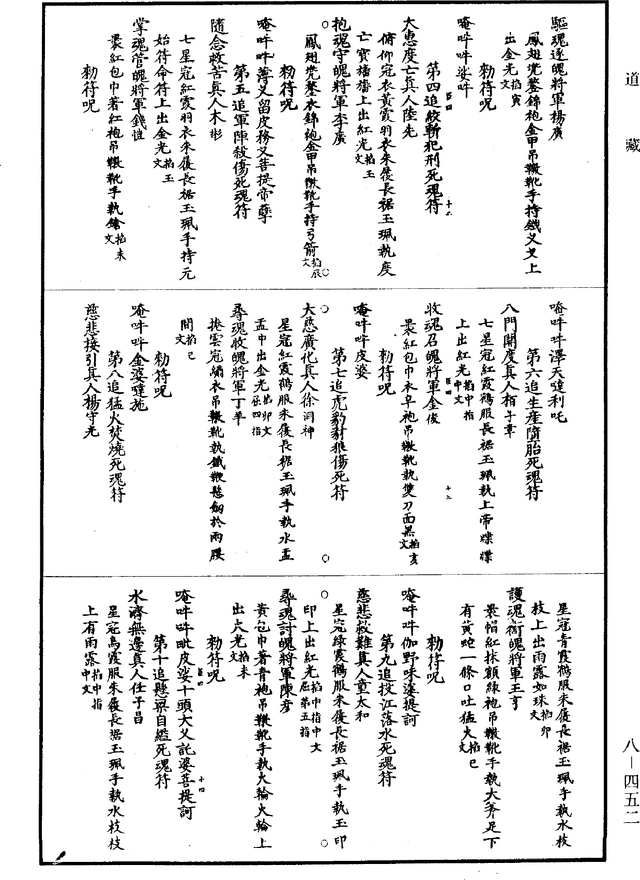 道藏
驅魂逐魄將軍楊廣
鳳翅兠鍪錦袍金甲吊𩍐靴手持鐵叉叉上
出金光掐寅文
勑符呪
唵吽吽婆吽
第四追絞斬犯刑死魂符
大惠度亡真人陸先
俯仰冠衣黃霞羽衣朱履長裾玉珮執度
亡寶旛旛上出紅光掐玉文
抱魂守魄將軍李廣
鳳翅兠鍪衣錦袍金甲吊𩍐靴手持弓箭掐辰文
勑符呪
唵吽吽薄义留皮務义菩提帝孽
第五追軍陣殺傷死魂符
隨念救苦真人木彬
七星冠紅霞羽衣朱履長裾玉珮手持元
始符命符上出金光掐玉文
掌魂管魄將軍錢愷
裹紅包巾著紅袍吊𩍐靴手執鎗掐未文
勑符呪
唵吽吽澤天噠利吒
第六追生產墮胎死魂符
八門開度真人栢子章
七星冠紅霞鶴服朱履長裾玉珮執上帝牒牒
上出紅光掐中指中文
收魂召魄將軍金俊
裹紅包巾衣皁袍吊𩍐靴執雙刀面黑掐亥文
勑符呪
唵吽吽皮婆
第七追虎豹豺狼傷死符
大慈廣化真人徐洞神
星冠紅霞鶴服朱履長裾玉珮手執水盂
盂中出金光掐卯文屈四指
尋魂收魄將軍丁平
捲雲冠繡衣吊𩍐靴執鐵鞭懸劒於兩腰
間掐巳文
勑符呪
唵吽吽金婆噠施
第八追猛火焚燒死魂符
慈悲接引真人楊守光
星冠青霞鶴服朱履長裾玉珮手執水枝
枝上出雨露如珠掐卯文
護魂衛魄將軍王亨
裹帽紅抹額綠袍吊𩍐靴手執大斧足下
有黃蛇一條口吐猛火掐巳文
勑符呪
唵吽吽伽野味婆提訶
第九追投江落水死魂符
慈悲救難真人董太和
星冠綠霞鶴服朱履長裾玉珮手執玉印
印上出紅光掐中指中文屈第五指
尋魂討魄將軍陳彥
黃包巾著青袍吊𩍐靴手執火輪火輪上
出火光掐未文
勑符呪
唵吽吽毗皮婆十頭大义託婆菩提訶
第十追懸梁自縊死魂符
水濟無邊真人任子昌
星冠烏霞服朱履長裾玉珮手執水枝枝
上有雨露掐中指中文
八－四五二